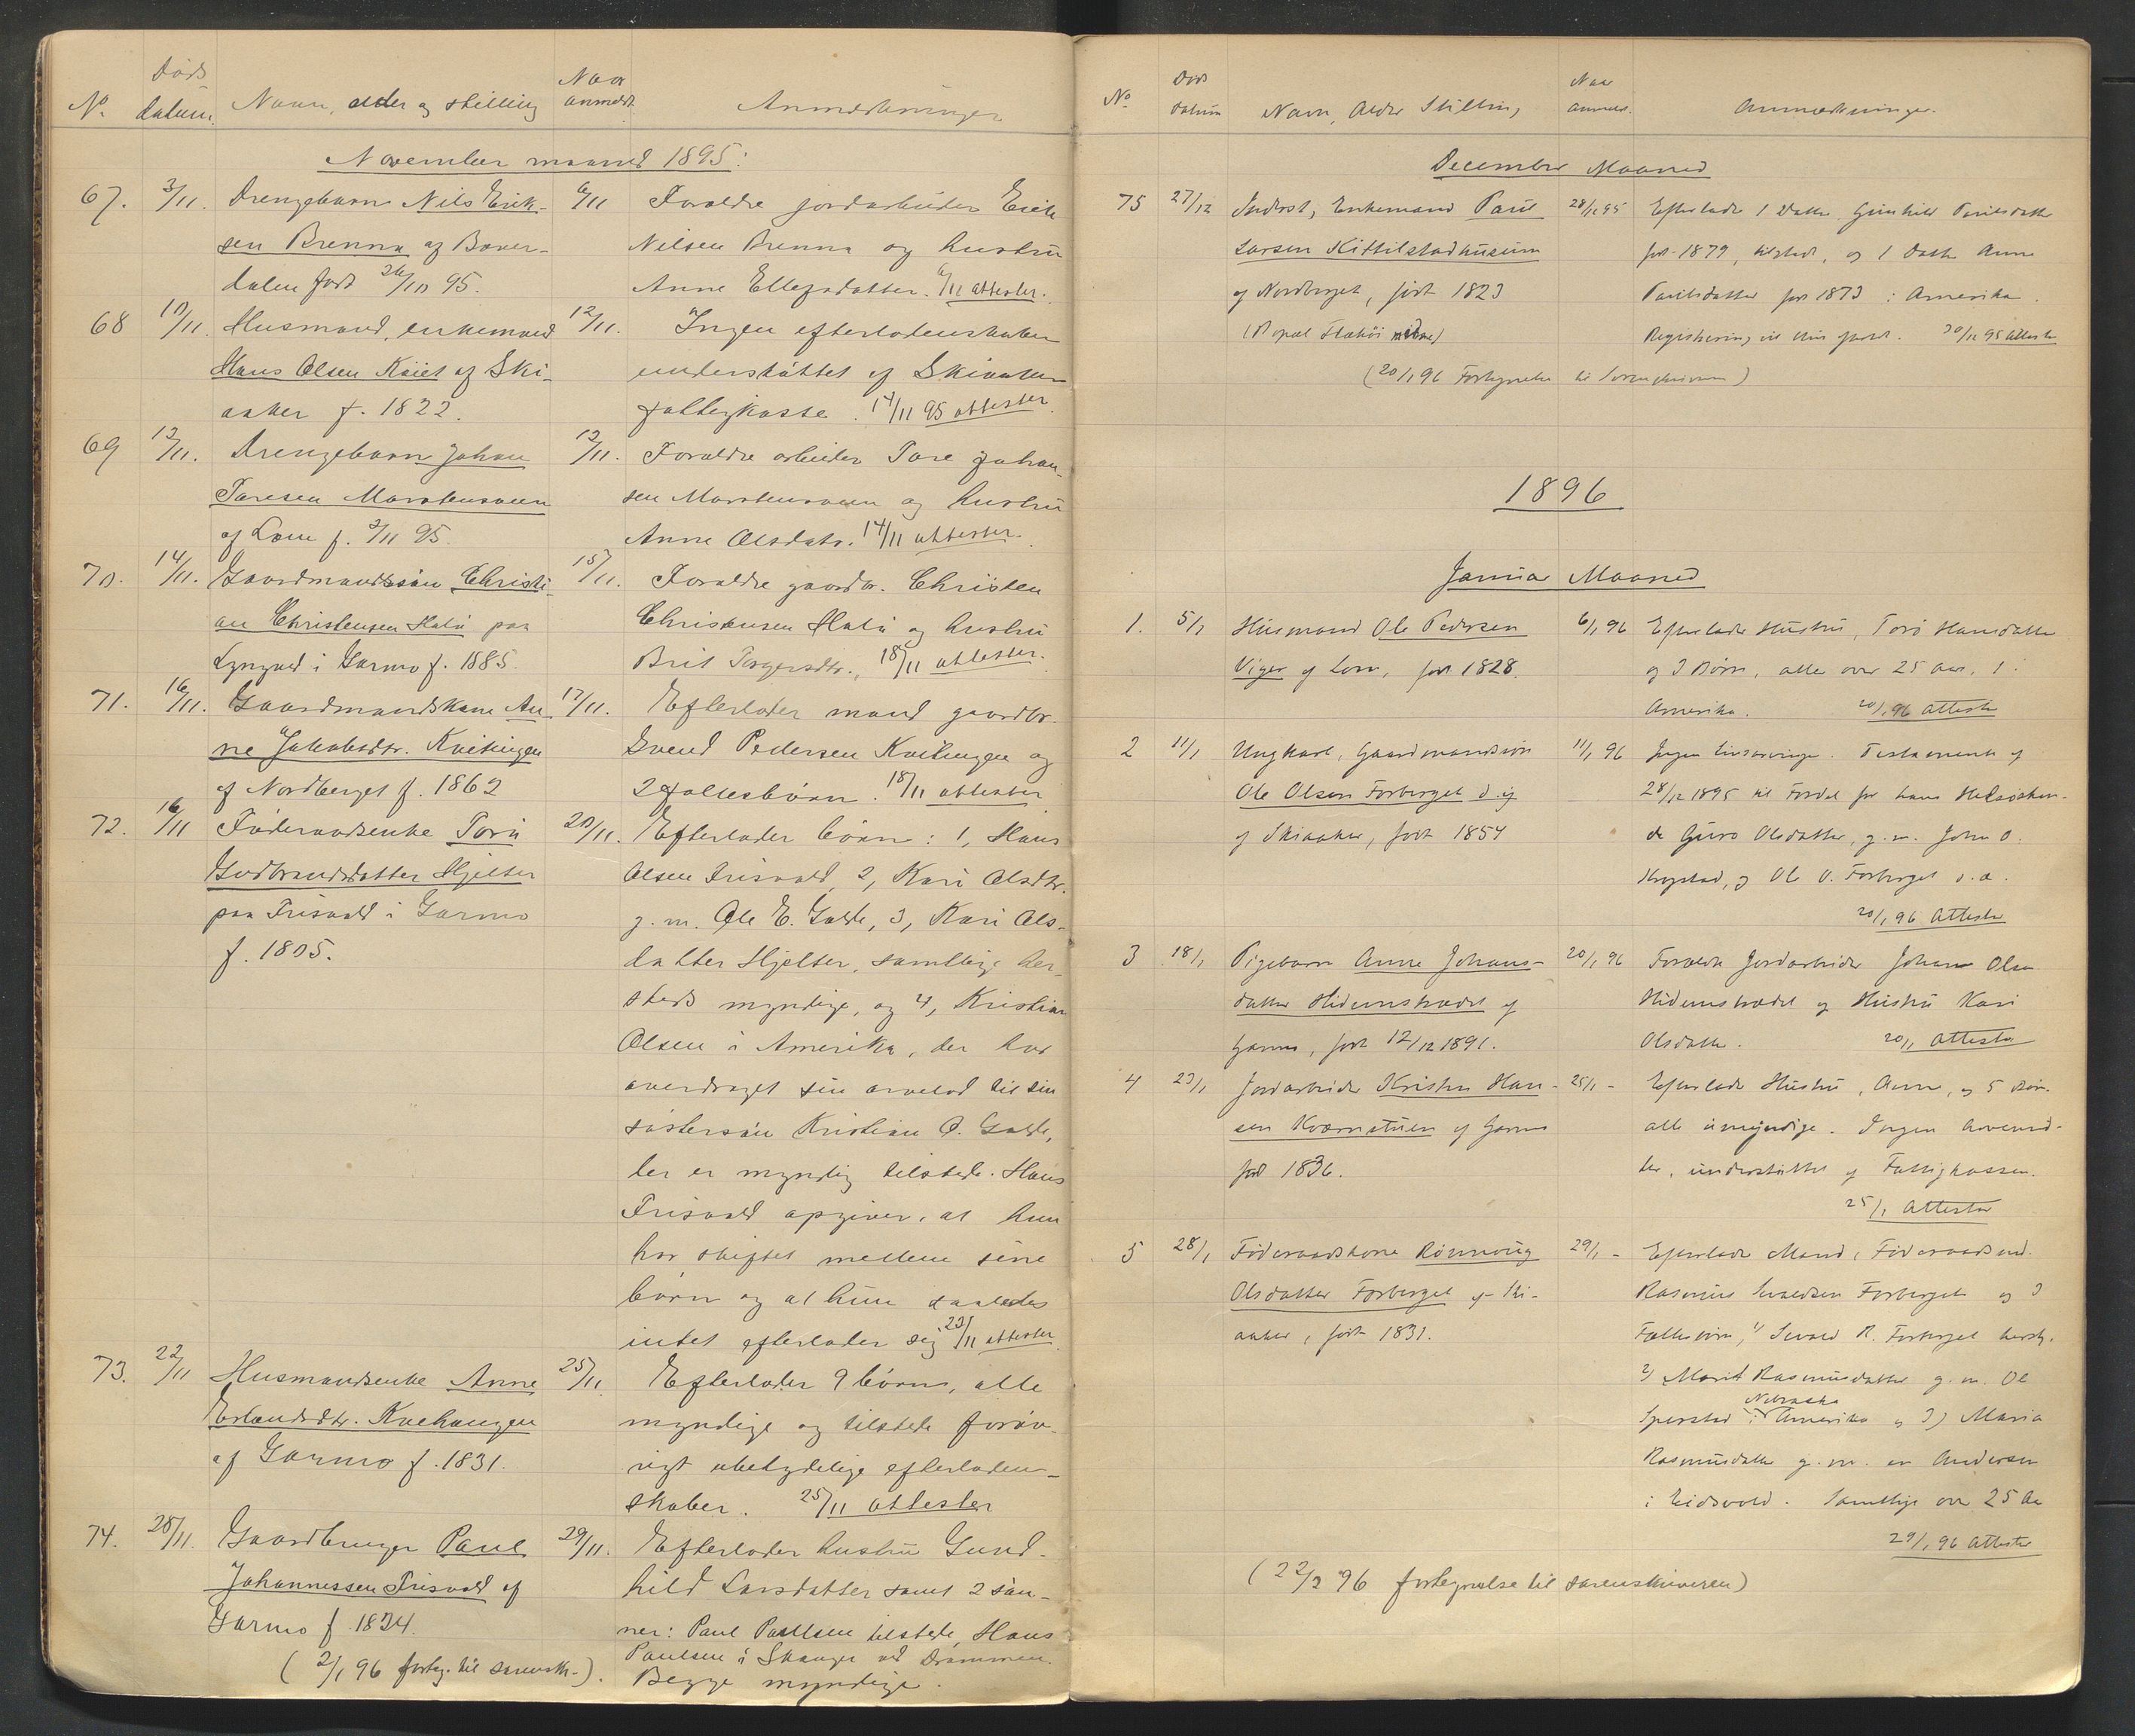 No. Døds datum. Navn, alder og stilling Naar anmeldt. Anmerkninger
November maaned 1895:
67. 3/11. Drengebarn Nils Erik- 6/11 Forældre jordarbeider Erik
sen Brenna af Bøver- Nilsen Brenna og hustru
dalen født 26/10 95. Anne Ellefsdatter. 6/11 attester.
68 10/11. Husmand, enkemand 12/11. Ingen efterladenskaber
Hans Olsen Kviet af Ski- understøttet af Skiaaker
aaker f. 1822. fattigkasse. 14/11 95 attester.
69 12/11. Drengebarn Johan 12/11. Forældre arbeider Tore Johan-
Toresen Marstensveen sen Marstensveen og hustru
af Lom f. 2/11 95. Anne Olsdatr. 14/11 attester.
70. 14/11. Gaardmandssøn Christi- 15/11. Forældre gaardbr. Christen
an Christensen Halu paa Christensen Halu og hustru
Lyngved i Garmo f. 1885. Brit Torgersdtr., 18/11 attester.
71. 16/11. Gaardmandskone An- 17/11. Efterlader mand gaardbr.
ne Jakobsdtr. Kvitingen Svend Pedersen Kvitingen og
af Nordberget f. 1862 2 fællesbørn. 18/11 attester
72. 16/11 Føderaadsenke Toru 20/11. Efterlader børn: 1, Hans
Gudbrandsdatter Hjelter Olsen Frisvold, 2, Kari Olsdtr.
paa Frisvold i Garmo g. m. Ole E. Galde, 3, Kari Ols-
f. 1805. datter Hjelter, samtlige her-
steds myndige, og 4, Kristian
Olsen i Amerika, der har
overdraget sin arvelod til sin
søstersøn Kristian O. Galde,
der er myndig tilstede. Hans
Frisvold opgiver, at hun
har skiftet mellem sine
børn og at hun saaledes
intet efterlader sig 23/11 attester.
73. 22/11 Husmandsenke Anne 25/11. Efterlader 9 børn, alle
Erlandsdtr. Kvehaugen myndige og tilstede forøv-
af Garmo f. 1831. rigt ubetydelige efterladen-
skaber. 25/11 attester
74. 28/11. Gaardbruger Paul 29/11. Efterlader hustru Gund-
Johannessen Frisvold af hild Larsdatter samt 2 søn-
Garmo f. 1824. ner: Paul Paulsen tilstede, Hans
(2/1 96 forteg. til sorensk-). Paulsen i Skauger ved Drammen.
Begge myndige.
No. Døds datum Navn, Alder Stilling Naar anmeldt. Anmærkninger.
December Maaned
75 27/12 Inderst, Enkemand Paul 28/12 95 Efterlader 1 Datter Gunhild Paulsdatter
Larsen Kittilstadhusum født 1879, tilstede, og 1 Datter Anne
af Nordberget, født 1823 Paulsdatter født 1873 i Amerika.
(Bopæl Flækøi nedre) Registrering vil blive foret. 30/12 95 Attester
(20/1 96 Fortegnelse til Sorenskriveren)
1896
Januar Maaned
1. 5/1 Husmand Ole Pedersen 6/1 96 Efterlader Hustru, Toro Hansdatter
Viger af Lom, født 1828. og 3 Børn, alle over 25 Aar, 1 i
Amerika. 20/1 96 Attester
2 11/1 Ungkarl, Gaardmandssøn 11/1 96 Ingen Livsarvinger. Testamente af
Ole Olsen Forberget d. y. 28/12 1895 til Fordel for hans Helsøsken-
af Skiaaker, født 1854 de Guro Olsdatter, g. m. John O.
Krogstad, og Ole O. Forberget d. æ.
20/1 96 Attester
3 18/1 Pigebarn Anne Johans- 20/1 96 Forældre Jordarbeider Johan Olsen
datter Hidemstrædet af Hidemstrædet og Hustru Kari
Garmo, født 12/12 1891. Olsdatter. 20/1 Attester
4 23/1 Jordarbeider Kristen Han- 25/1 - Efterlader Hustru, Anne, og 5 Børn
sen Kværnstuen af Garmo alle umyndige. Ingen Arvemid-
født 1836. ler, understøttet af Fattigkassen.
25/1 Attester
5 28/1 Føderaadskone Rønnoug 29/1 - Efterlader Mand, Føderaadsmd.
Olsdatter Forberget af Ski- Rasmus Sevaldsen Forberget og 3
aaker, født 1831. Fællesbørn, 1) Sevald R. Forberget herst.
2) Marit Rasmusdatter g. m. Ole
Sperstad i Nebraska Amerika og 3) Maria
Rasmusdatter g. m. en Andersen
i Eidsvold. Samtlige over 25 Aar
29/1 96 Attester
(22/2 96 fortegnelse til sorenskriveren)